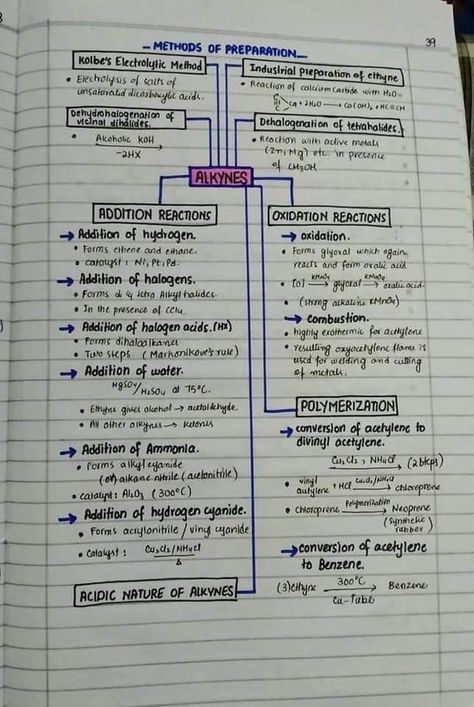 39
METHODS OF PREPARATION
Kolbe's Electrolytic Method
• Electrolysis of salts of
unsaturated dicarboxylic acids.
Industrial preparation of ethyne
• Reaction of calcium carbide with H₂O.
C
||| Ca + 2H₂O → Ca(OH)₂ + HC≡CH
C
Dehydrohalogenation of
vicinal dihalides.
• Alcoholic KOH
-2HX
Dehalogenation of tetrahalides.
• Reaction with active metals
(Zn, Mg) etc. in presence
of CH₃OH
ALKYNES
ADDITION REACTIONS
→ Addition of hydrogen.
• Forms ethene and ethane.
• catalyst : Ni, Pt, Pd.
→ Addition of halogens.
• Forms di & tetra Alkyl halides.
• In the presence of CCl₄.
→ Addition of halogen acids. (HX)
• Forms dihaloalkanes
• Two steps. (Markonikove's rule)
→ Addition of water.
HgSO₄/H₂SO₄ at 75°C.
• Ethyne gives alcohol → acetaldehyde.
• All other alkynes → ketones
→ Addition of Ammonia.
• Forms alkyl cyanide
(or) alkane nitrile (acetonitrile)
• catalyst : Al₂O₃ (300°C)
→ Addition of hydrogen cyanide.
• Forms acrylonitrile / vinyl cyanide
• Catalyst : Cu₂Cl₂/NH₄Cl
Δ
ACIDIC NATURE OF ALKYNES
OXIDATION REACTIONS
→ oxidation.
• Forms glyoxal which again
reacts and form oxalic acid
• [O] KMnO₄→ glyoxal KMnO₄→ oxalic acid.
• (strong alkaline KMnO₄)
→ combustion.
• highly exothermic for acetylene
• resulting oxyacetylene flame is
used for welding and cutting
of metals.
POLYMERIZATION
→ conversion of acetylene to
divinyl acetylene.
Cu₂Cl₂, NH₄Cl → (2 steps)
• vinyl acetylene + HCl Cu₂Cl₂/NH₄Cl→ chloroprene
• Chloroprene Polymerization→ Neoprene
(synthetic
rubber)
→ conversion of acetylene
to Benzene.
(3) ethyne 300°C→ Benzene
Cu-Tube